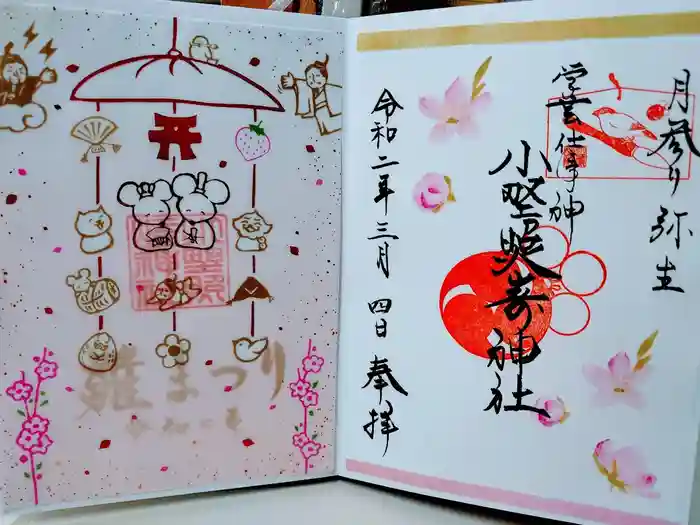 月参り 弥生
学芸仕事神
小野照崎神社
令和二年三月四日 奉拝
雛まつり